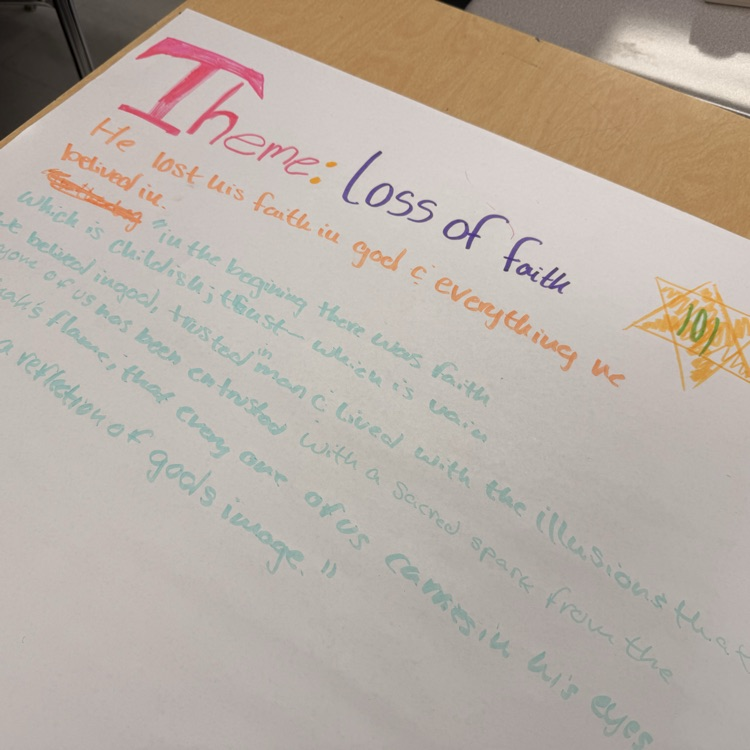 Theme: Loss of faith
He lost his faith in god & everything he
belived in.
"in the begining there was faith
which is childish; trust - which is vain
we belived in god, trusted in man & lived with the illusions that
of us has been entrusted with a sacred spark from the
flame, that every one of us carries in his eyes
a reflection of gods image."
101